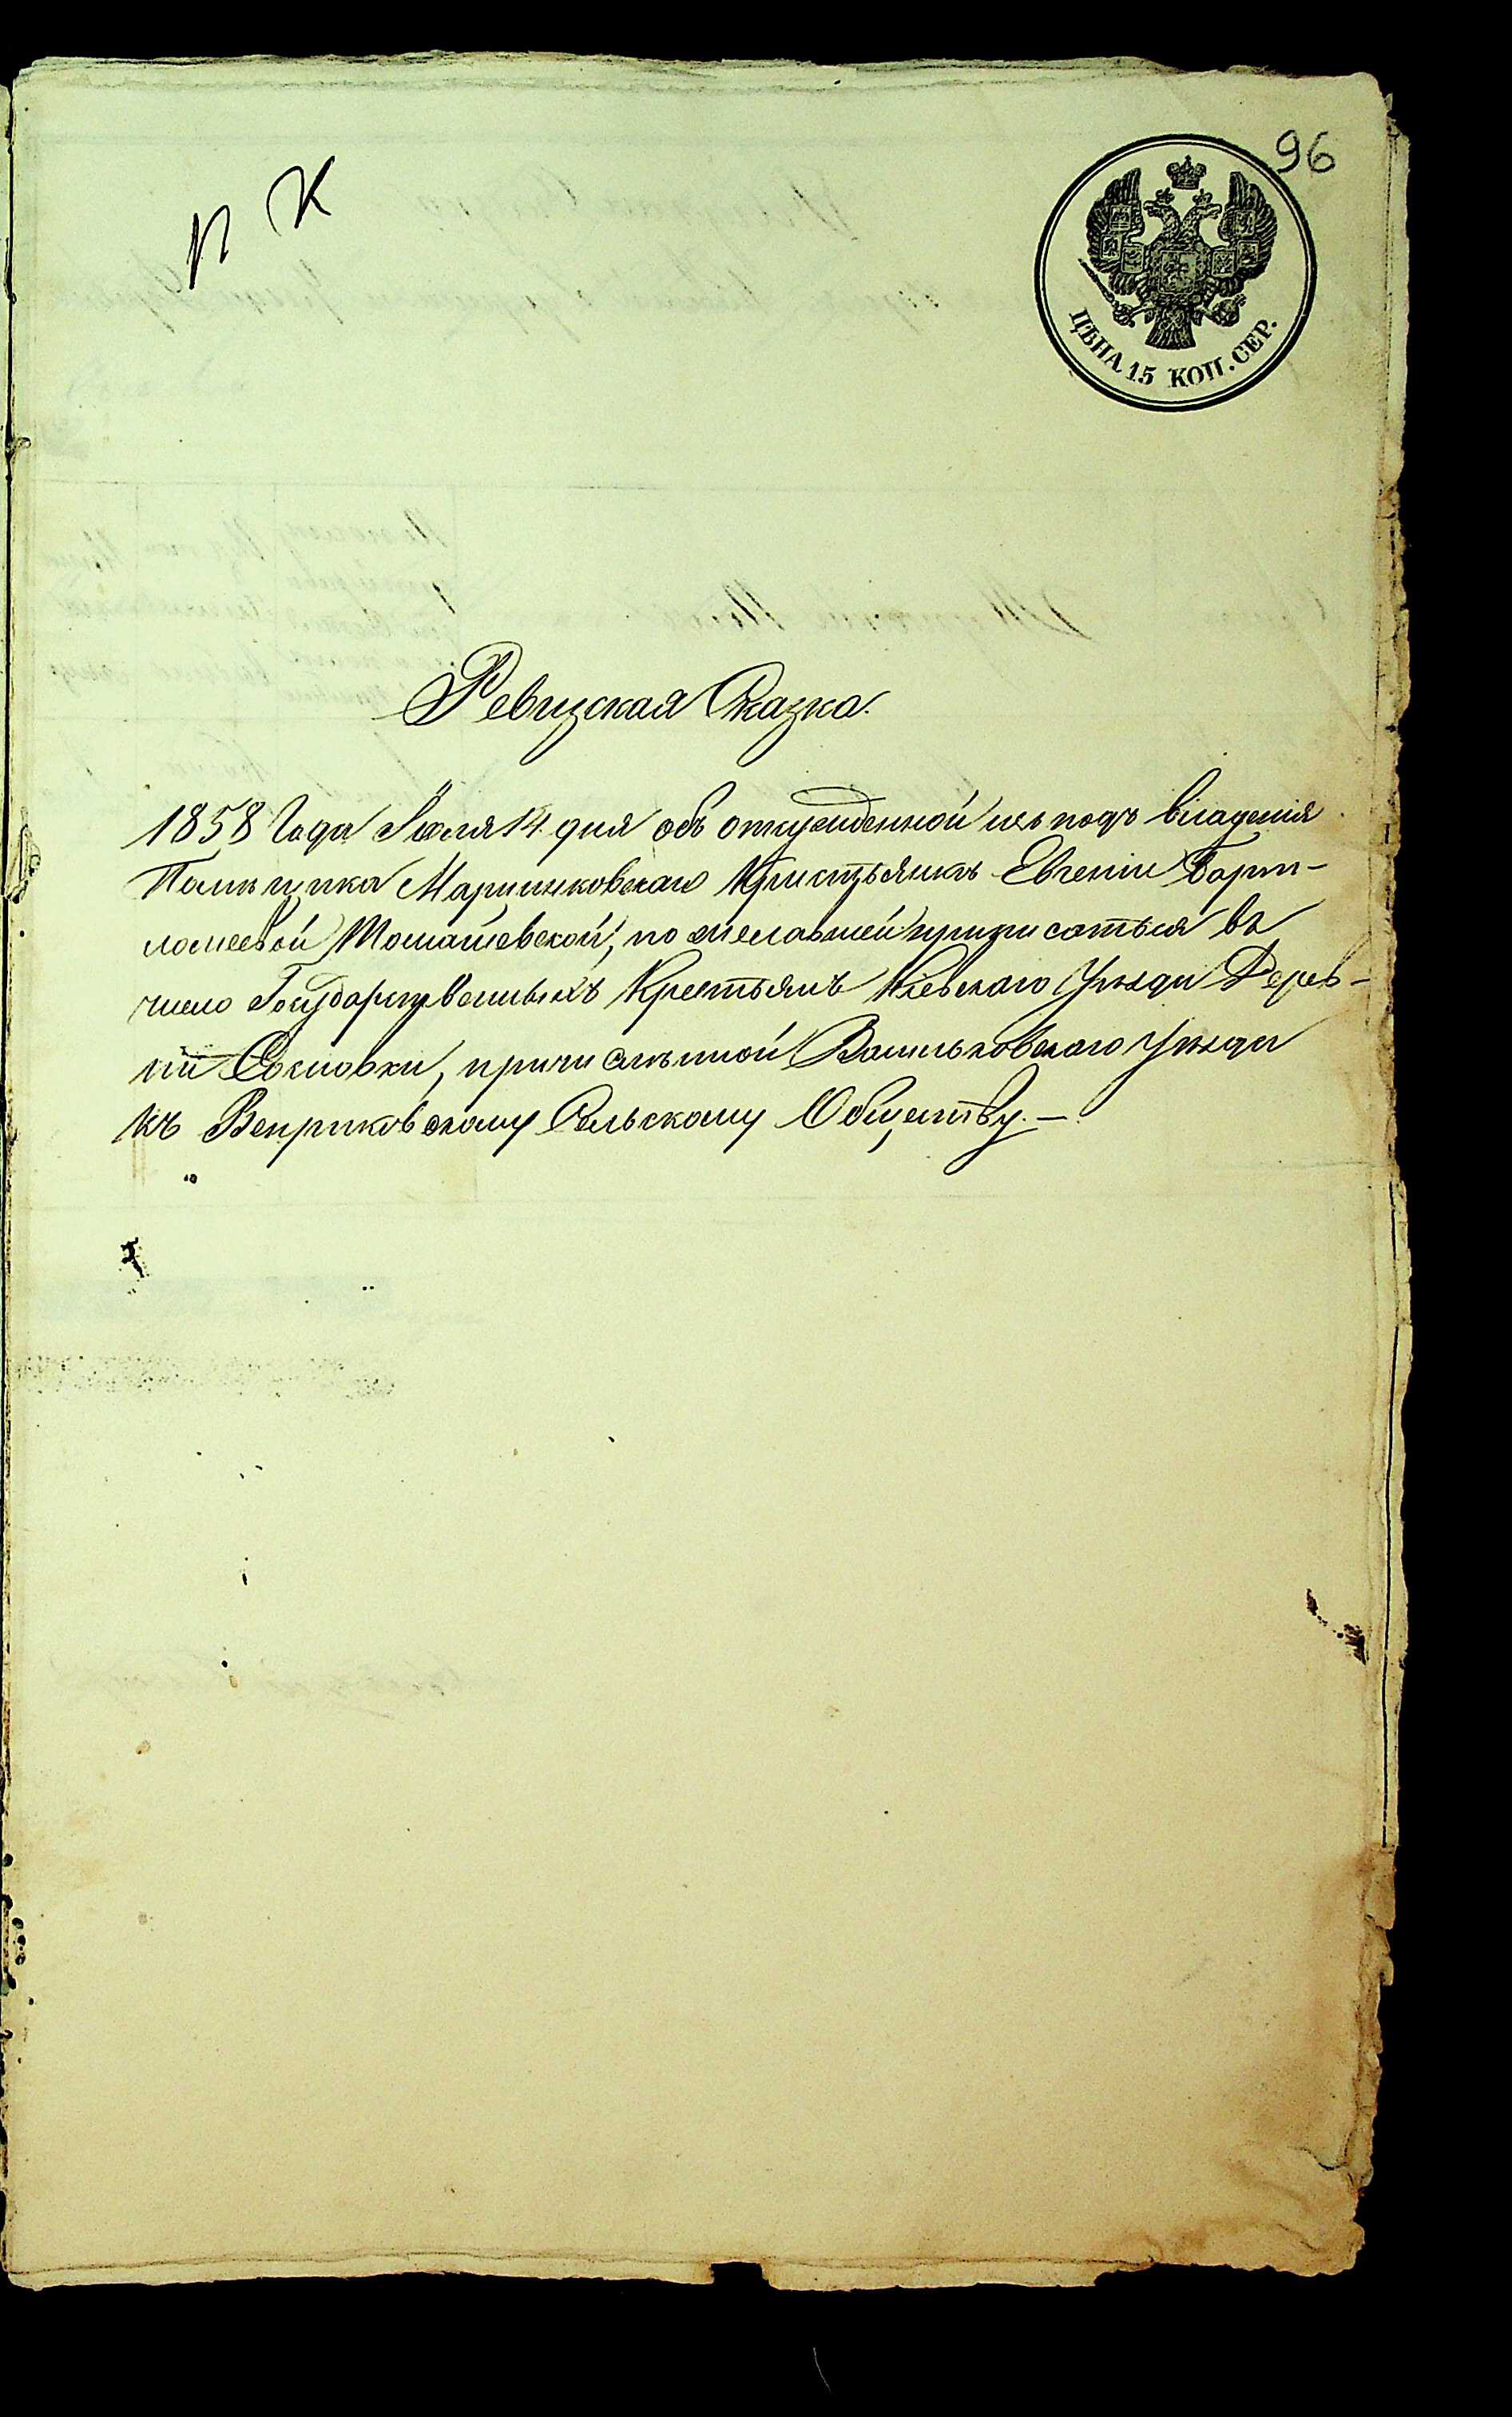 96
П К
ЦѢНА 15 КОП. СЕР.
Ревизская Сказка.
1858 Года Іюля 14 дня объ отчужденной изъ подъ владенія
Помѣщика Марцинковскаго Крестьянкѣ Евгеніи Барт-
ломеевой Томашевской, пожелавшей приписаться въ
число Государственныхъ Крестьянъ Кіевскаго Уѣзда Дерев-
ни Сосновки, причисленной Васильковскаго Уѣзда
къ Веприковскому Сельскому Обществу.—